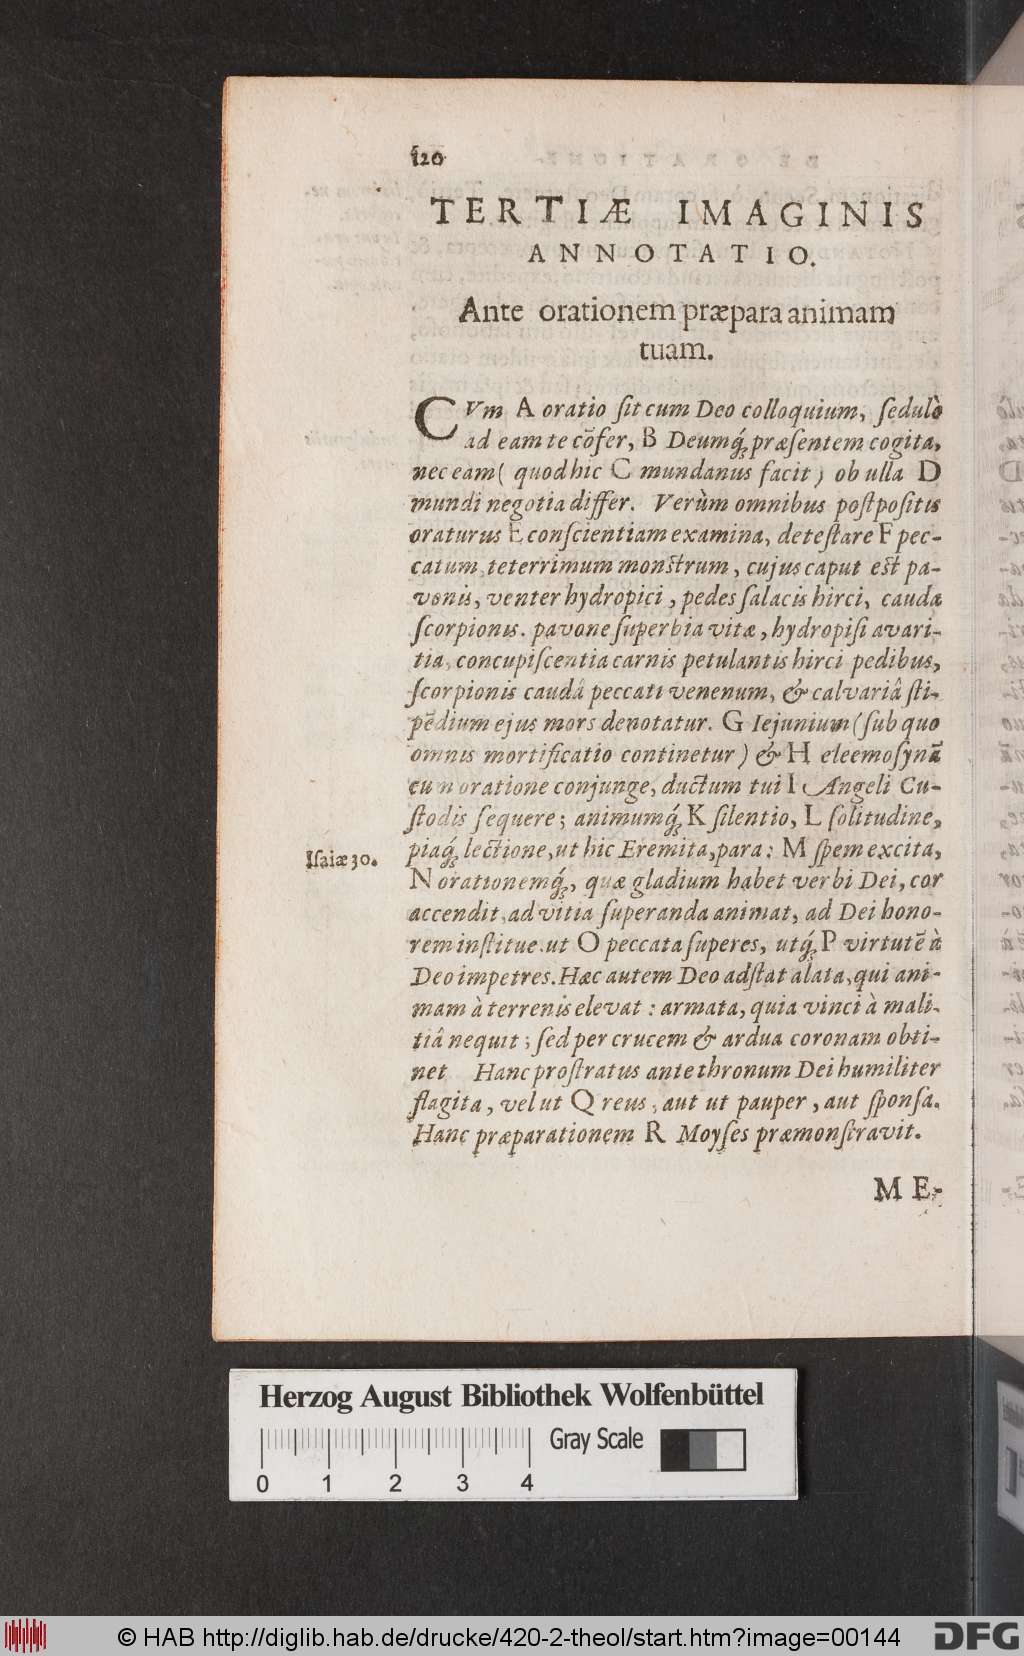 120
TERTIÆ IMAGINIS
ANNOTATIO.
Ante orationem præpara animam
tuam.
CVm A oratio ſit cum Deo colloquium, ſedulò
ad eam te cōfer, B Deumq́; præſentem cogita,
nec eam ( quod hic C mundanus facit ) ob ulla D
mundi negotia differ. Verùm omnibus poſtpoſitis
oraturus E conſcientiam examina, deteſtare F pec-
catum, teterrimum monſtrum, cujus caput eſt pa-
vonis, venter hydropici, pedes ſalacis hirci, cauda
ſcorpionis. pavone ſuperbia vitæ, hydropiſi avari-
tia, concupiſcentia carnis petulantis hirci pedibus,
ſcorpionis caudâ peccati venenum, & calvariâ ſti-
pēdium ejus mors denotatur. G Iejunium (ſub quo
omnis mortificatio continetur) & H eleemoſynā
cum oratione conjunge, ductum tui I Angeli Cu-
ſtodis ſequere; animumq́; K ſilentio, L ſolitudine,
piaq́; lectione, ut hic Eremita, para: M ſpem excita,
Iſaiæ 30.
N orationemq́;, quæ gladium habet verbi Dei, cor
accendit, ad vitia ſuperanda animat, ad Dei hono-
rem inſtitue. ut O peccata ſuperes, utq́; P virtutē à
Deo impetres. Hæc autem Deo adſtat alata, qui ani-
mam à terrenis elevat : armata, quia vinci à mali-
tiâ nequit ; ſed per crucem & ardua coronam obti-
net Hanc proſtratus ante thronum Dei humiliter
flagita, vel ut Q reus, aut ut pauper, aut ſponſa.
Hanc præparationem R Moyſes præmonſtravit.
ME-
Herzog August Bibliothek Wolfenbüttel
Gray Scale
0 1 2 3 4
© HAB http://diglib.hab.de/drucke/420-2-theol/start.htm?image=00144
DFG